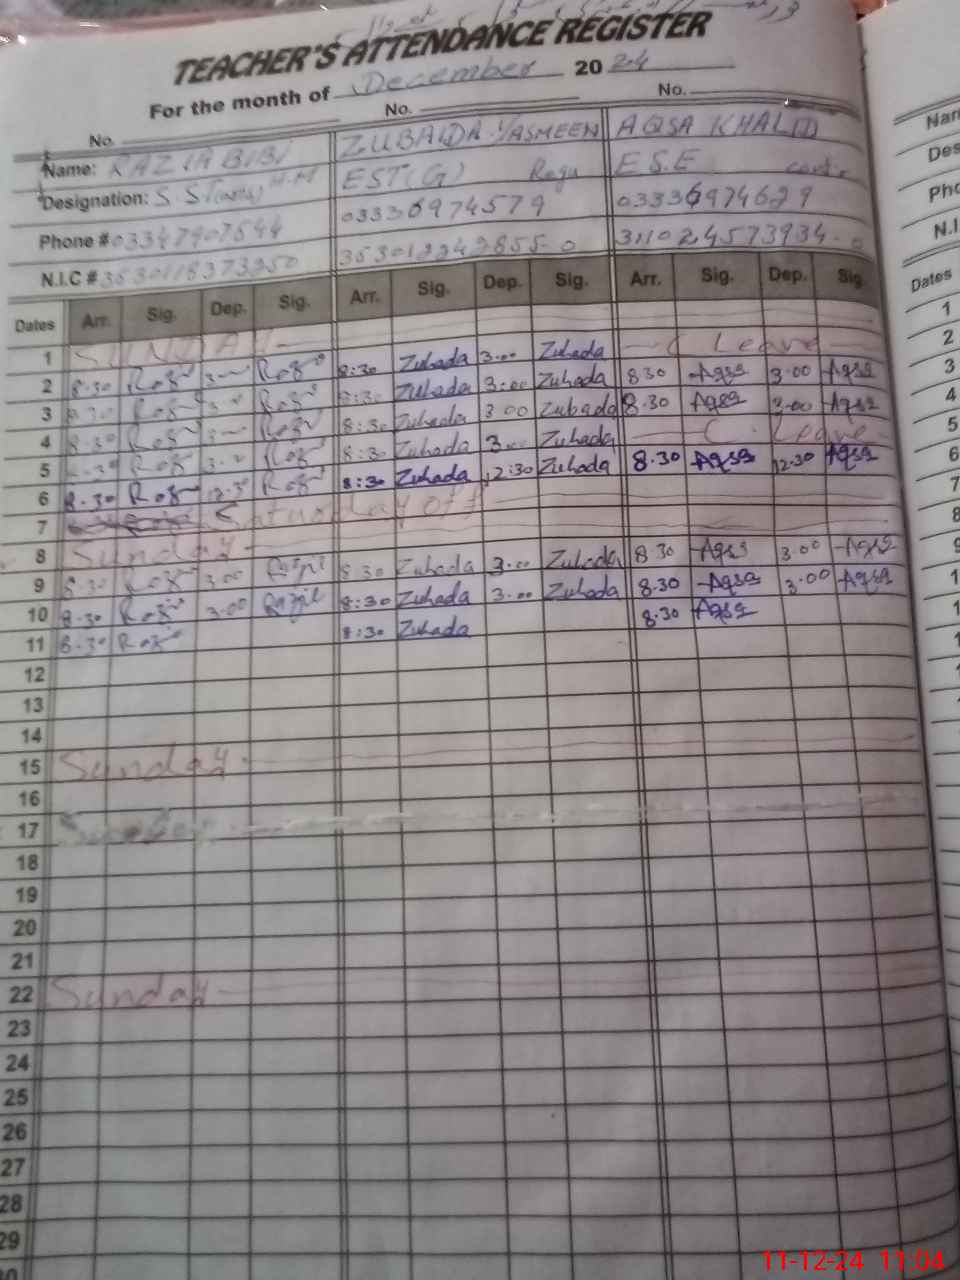 TEACHER'S ATTENDANCE REGISTER
For the month of December 2024
No. No. No.
Name: RAZIA BIBI ZUBAIDA YASMEEN AQSA KHALID
Designation: S.S.T H.M EST(G) Regu E.S.E contr
Phone # 03347907544 03336974579 03336974629
N.I.C # 3630118373250 363012242855-0 311024573934-0
Dates Arr. Sig. Dep. Sig. Arr. Sig. Dep. Sig. Arr. Sig. Dep. Sig.
1 SUNDAY
2 8.30 3.00 8:30 Zubada 3.00 Zubada C Leave
3 8.30 8:30 Zubada 3:00 Zubada 8 30 Aqsa 3.00 Aqsa
4 8.30 8:30 Zubada 3 00 Zubada 8.30 Aqsa 3.00 Aqsa
5 8.30 8:30 Zubada 3.00 Zubada C. Leave
6 8.30 12.30 8:30 Zubada 12:30 Zubada 8.30 Aqsa 12.30 Aqsa
7 Saturday off
8 Sunday
9 8.30 3.00 8.30 Zubada 3.00 Zubada 8 30 Aqsa 3.00 Aqsa
10 8.30 3.00 8:30 Zubada 3.00 Zubada 8.30 Aqsa 3.00 Aqsa
11 8.30 8:30 Zubada 8.30 Aqsa
12
13
14
15 Sunday
16
17
18
19
20
21
22 Sunday
23
24
25
26
27
28
29
Nam
Des
Pho
N.I.
Dates
1
2
3
4
5
6
7
8
9
11-12-24 11:04